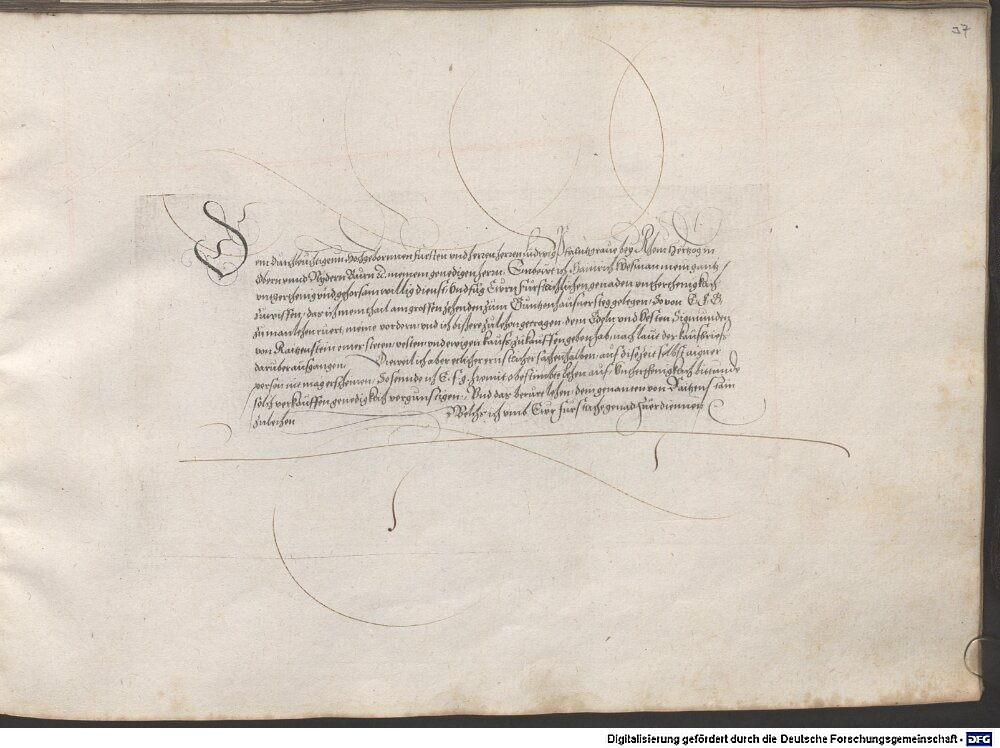 37
Dem durchleuchtigenn Hochgebornnen fürsten und herren herren Ludwig Pfaltzgrave bey Rhein Hertzog in
Obern unnd Nydern Bairn &c. meinem genedigen herrn, Embeut ich Hainrich mein gantz
unthertenig und gehorsam willig dienst, Und füg Ewrn Fürstlichen genaden unthertenigklich
zu wissen, das ich mein thail am grossen zehenden zum gelegen, So von E. F. G.
zu manlehen ruert, meine vordern, und ich bisher zu lehen getragen, dem Edeln und vesten Sigmunden
von ainer steten, vesten und ewigen kauffs zu kauffen geben hab, nach laut der kaufbriefs
darüber ausgangen. Dieweil ich aber etlicher ernstlicher sachen halben, auf dise zeit selbst aigner
person nit mag erscheinen, So sennde ich E. f. g. hiemit obestimbte lehen auf, Unthertenigklich bittende
solch verkauffen genedigklich vergunstigen, Und das berürt lehen dem genanten von
zu leihen Welchs ich umb Ewr fürstliche genad zuverdiennen
Digitalisierung gefördert durch die Deutsche Forschungsgemeinschaft - DFG